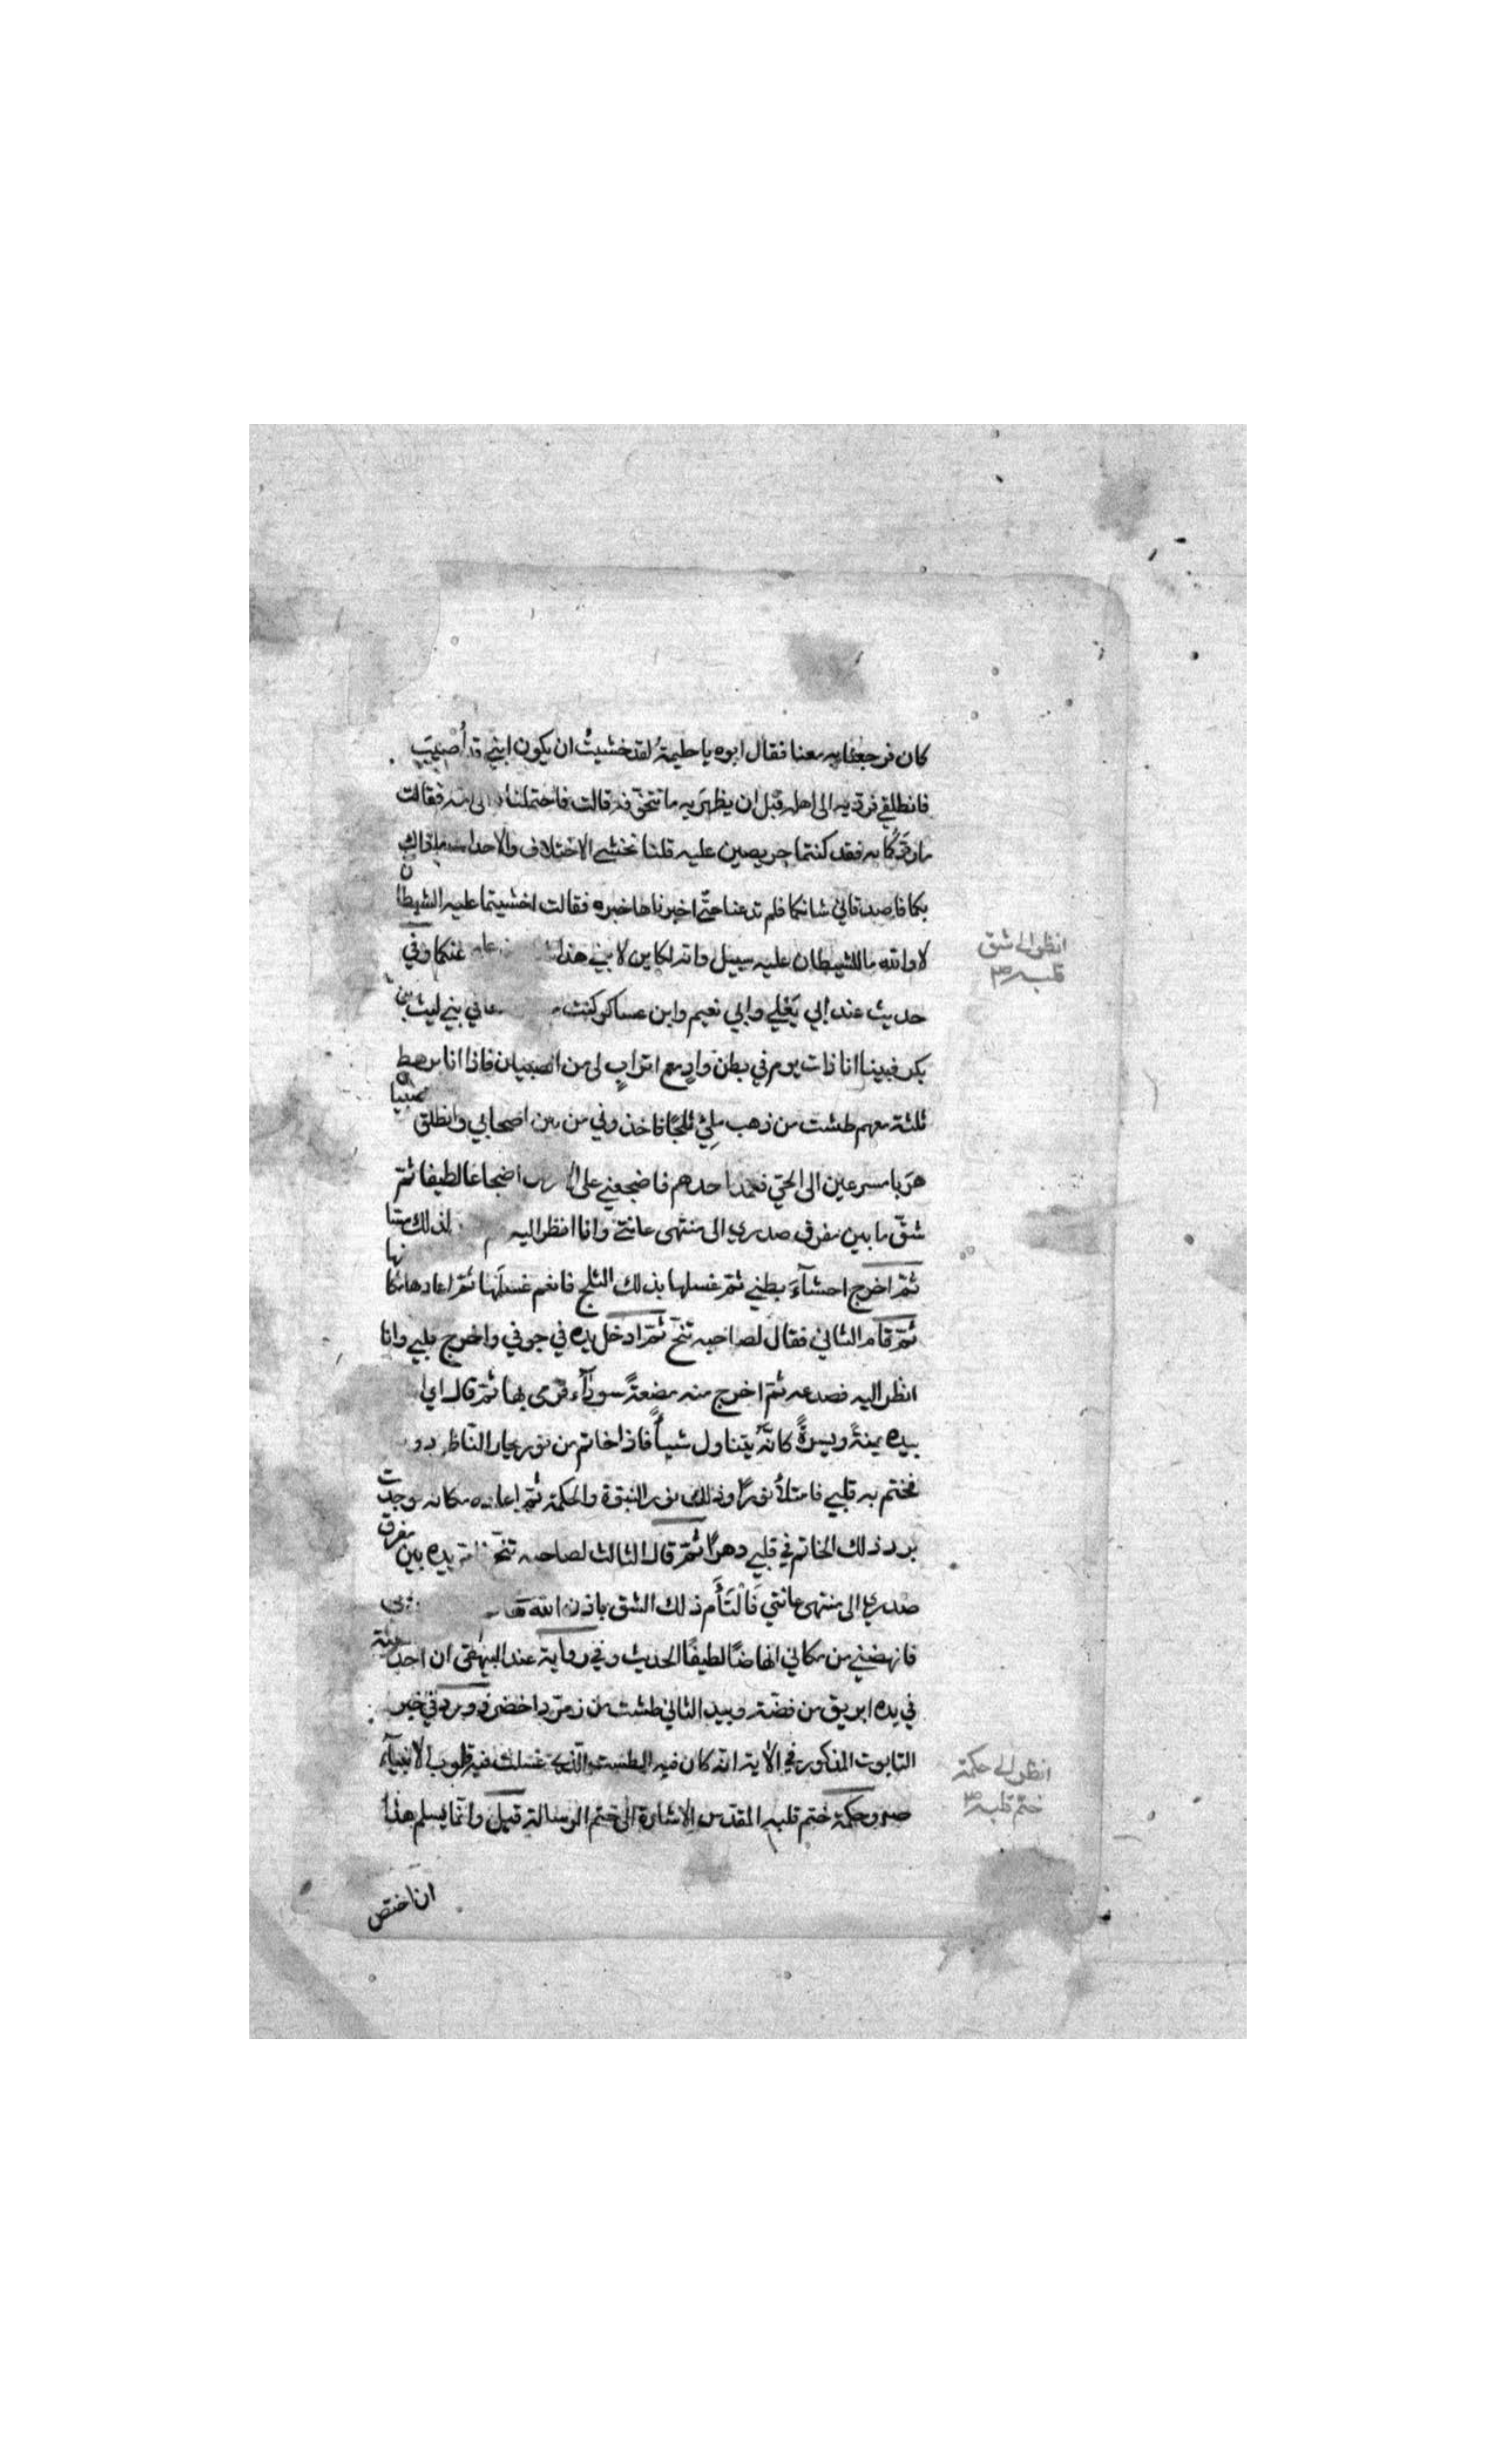 كان فرجعنا به معنا فقال ابوه يا حليمة لقد خشيت ان يكون ابني قد أُصيب
فانطلقي نرده الى اهله قبل ان يظهر به ما نتخوّفه قالت فاحتملناه الى امه فقالت
ما ردّكما به فقد كنتما حريصين عليه قلنا نخشى الاختلاف والاحداث فقالت ما ذاك
بكما فاصدقاني شانكما فلم تدعنا حتّى اخبرناها خبره فقالت اخشيتما عليه الشيطان
لا والله ما للشيطان عليه سبيل وانه لكاين لابني هذا عنكما وفي
حديث عند ابي يَعْلي وابي نعيم وابن عساكر كنت في بني ليث بن
بكر فبينا انا ذات يوم في بطن وادٍ مع اترابٍ لي من الصبيان فاذا انا برهط
ثلثة معهم طشت من ذهب مليء ثلجًا فاخذوني من بين اصحابي وانطلق الصبيان
هربا مسرعين الى الحيّ فعمد احدهم فاضجعني على الارض اضجاعا لطيفا ثمّ
شقّ ما بين مفرق صدري الى منتهى عانتي وانا انظر اليه لم لذلك مسّا
ثمّ اخرج احشآءَ بطني ثمّ غسلها بذلك الثلج فانعم غسلَها ثمّ اعادها مكانها
ثمّ قام الثاني فقال لصاحبه تنحّ ثمّ ادخل يده في جوفي واخرج قلبي وانا
انظر اليه فصدعه ثمّ اخرج منه مضغةً سودآء فرمى بها ثمّ قال اي
بيده يمنةً ويسرةً كانّه يتناول شيأً فاذا خاتم من نور يحار الناظر دونه
فختم به قلبي فامتلأ نورًا وذلك نور النبوّة والحكمة ثمّ اعاده مكانه فوجدت
برد ذلك الخاتم في قلبي دهرًا ثمّ قال الثالث لصاحبه تنحّ فامرّ يده بين مفرق
صدري الى منتهى عانتي فَالْتَأَم ذلك الشق باذن الله
فانهضني من مكاني انهاضًا لطيفًا الحديث وفي رواية عند البيهقي ان احد الثلثة
في يده ابريق من فضّة وبيد الثاني طشت من زمرّد اخضر وورد في خبر
التابوت المذكور في الآية انه كان فيه الطست الّذي غسلت فيه قلوب الانبيآء
صم وحكمة ختم قلبه المقدّس الاشارة الى ختم الرسالة قيل وانّما يسلم هذا
ان اختص
انظر الى شق
قلبه صم
انظر الى حكمة
ختم قلبه صم